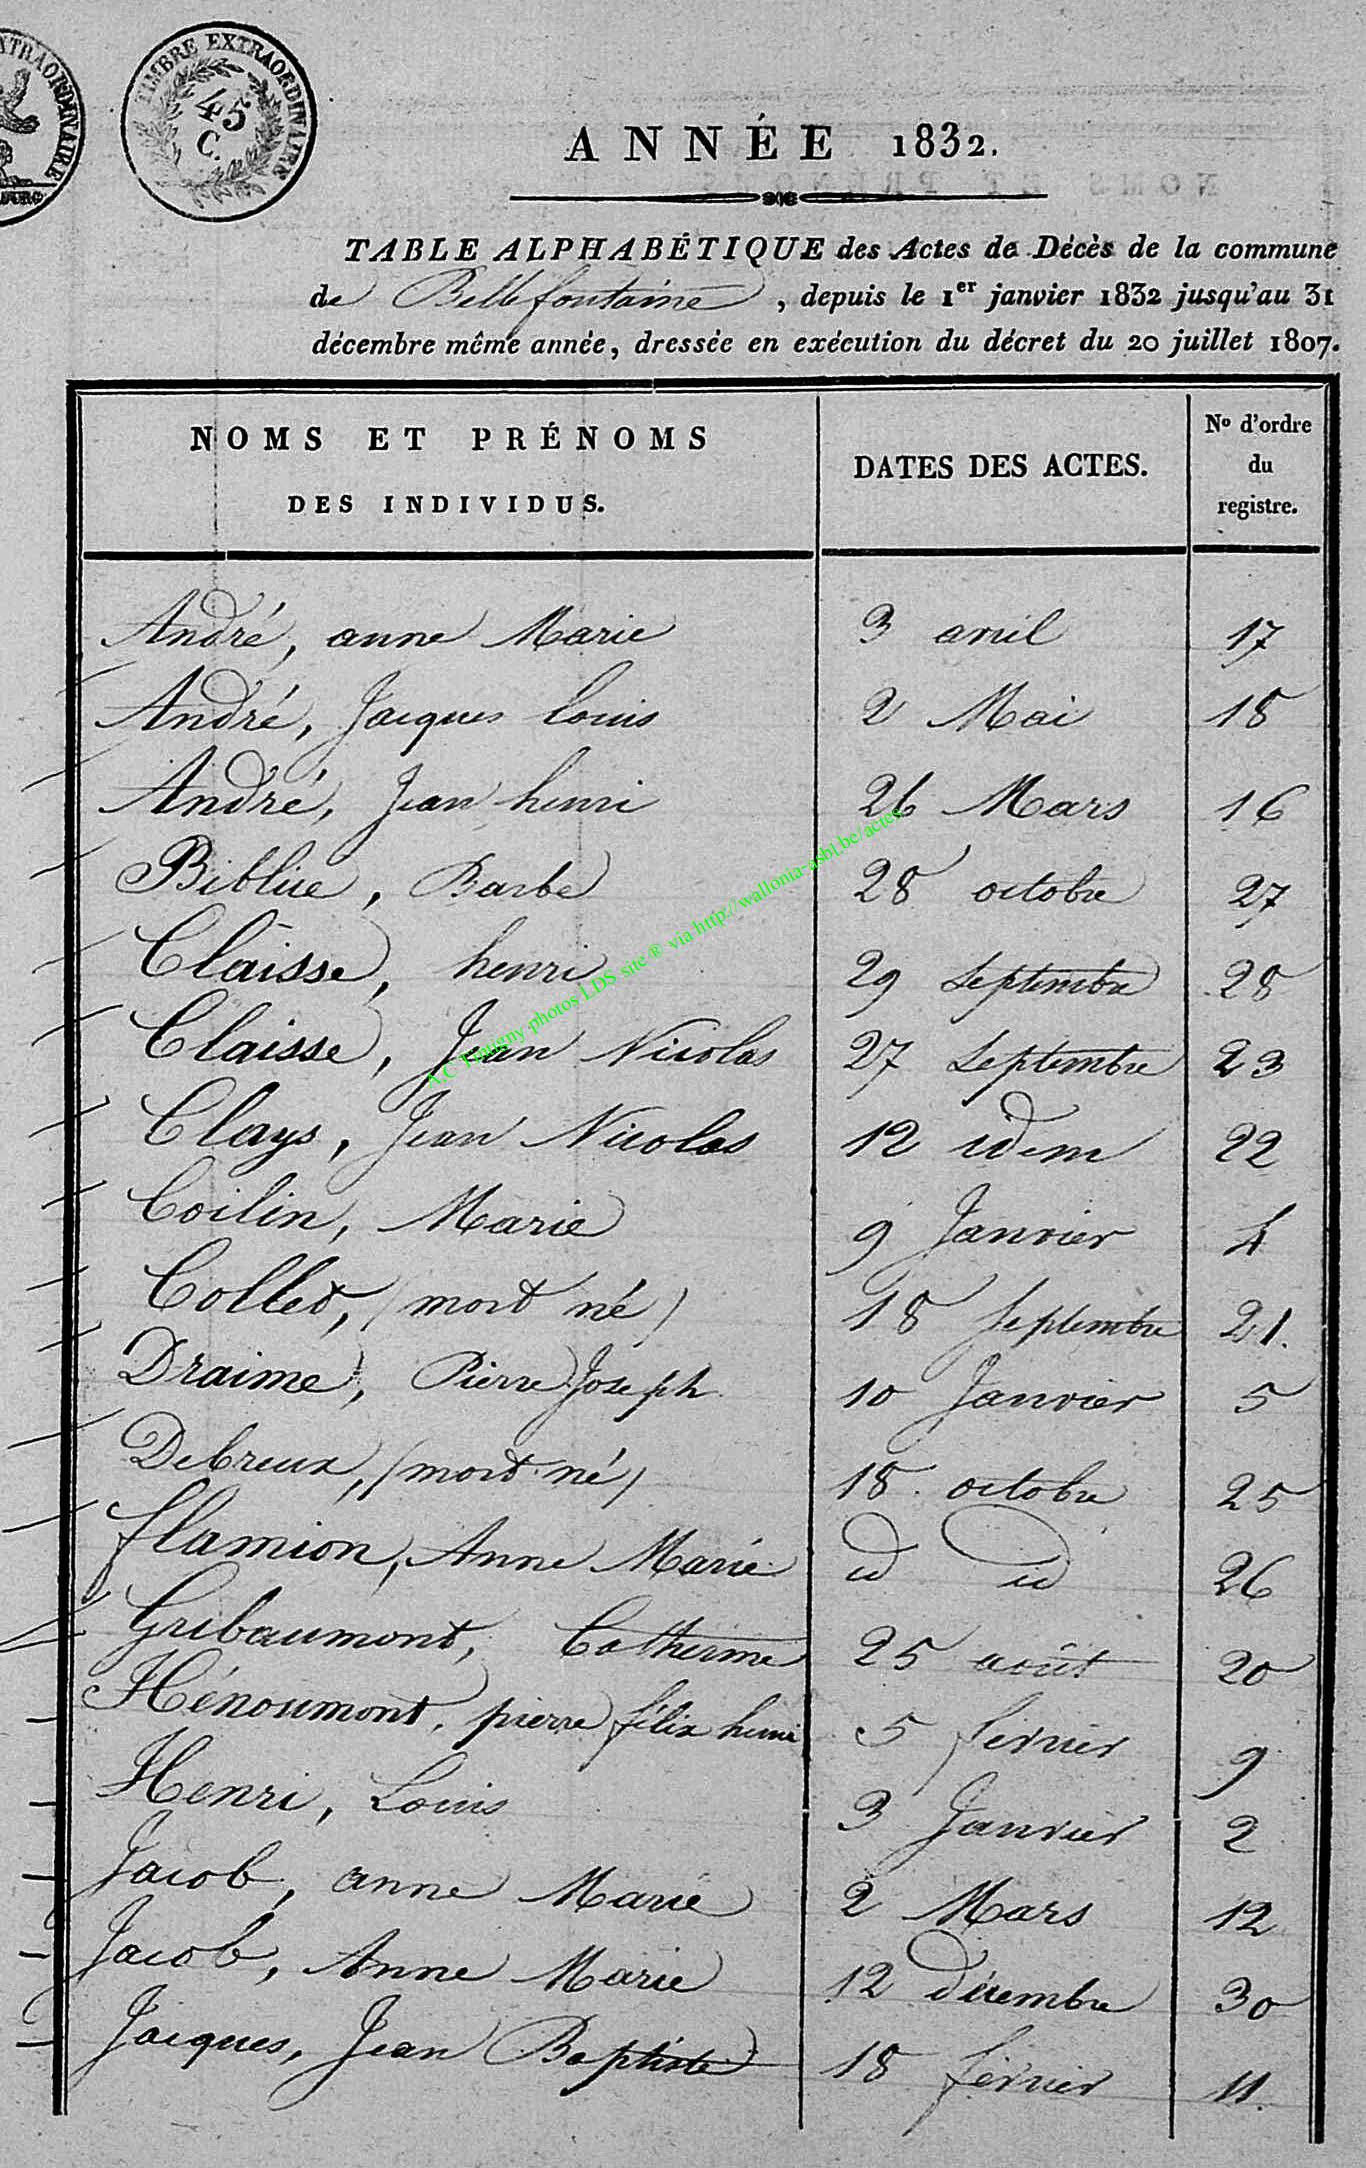 XTRAORDINAIRE
TIMBRE EXTRAORDINAIRE
45
C.
ANNÉE 1832.
TABLE ALPHABÉTIQUE des Actes de Décès de la commune
de Bellefontaine, depuis le 1er janvier 1832 jusqu'au 31
décembre même année, dressée en exécution du décret du 20 juillet 1807.
NOMS ET PRÉNOMS
DES INDIVIDUS.
DATES DES ACTES.
No d'ordre
du
registre.
André, anne Marie 3 avril 17
André, Jacques Louis 2 Mai 18
André, Jean henri 26 Mars 16
Barbe 28 octobre 27
Claisse, henri 29 Septembre 28
Claisse, Jean Nicolas 27 Septembre 23
Clays, Jean Nicolas 12 idem 22
Coilin, Marie 9 Janvier 4
Collet, (mort né) 18 Septembre 21.
Draime, Pierre Joseph 10 Janvier 5
Debreux, (mort né) 18 octobre 25
flamion, Anne Marie id id 26
Gribaumont, Catherine 25 août 20
Hénoumont, pierre félix henri 5 février 9
Henri, Louis 3 Janvier 2
Jacob, anne Marie 2 Mars 12
Jacob, Anne Marie 12 décembre 30
Jacques, Jean Baptiste 18 février 11.
A.C Tintigny photos LDS site ® via http://wallonia-asbl.be/actes